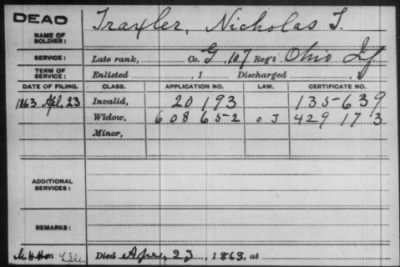 DEAD
NAME OF SOLDIER: Traxler, Nicholas T.
SERVICE: Late rank, Co. G, 107 Reg't Ohio Inf
TERM OF SERVICE: Enlisted , 1 Discharged , 1
DATE OF FILING. CLASS. APPLICATION NO. LAW. CERTIFICATE NO.
1863 Apl. 23 Invalid, 20193 135-639
Widow, 60865-2 OJ 429173
Minor,
ADDITIONAL SERVICES:
REMARKS:
Died Apr. 23, 1863, at